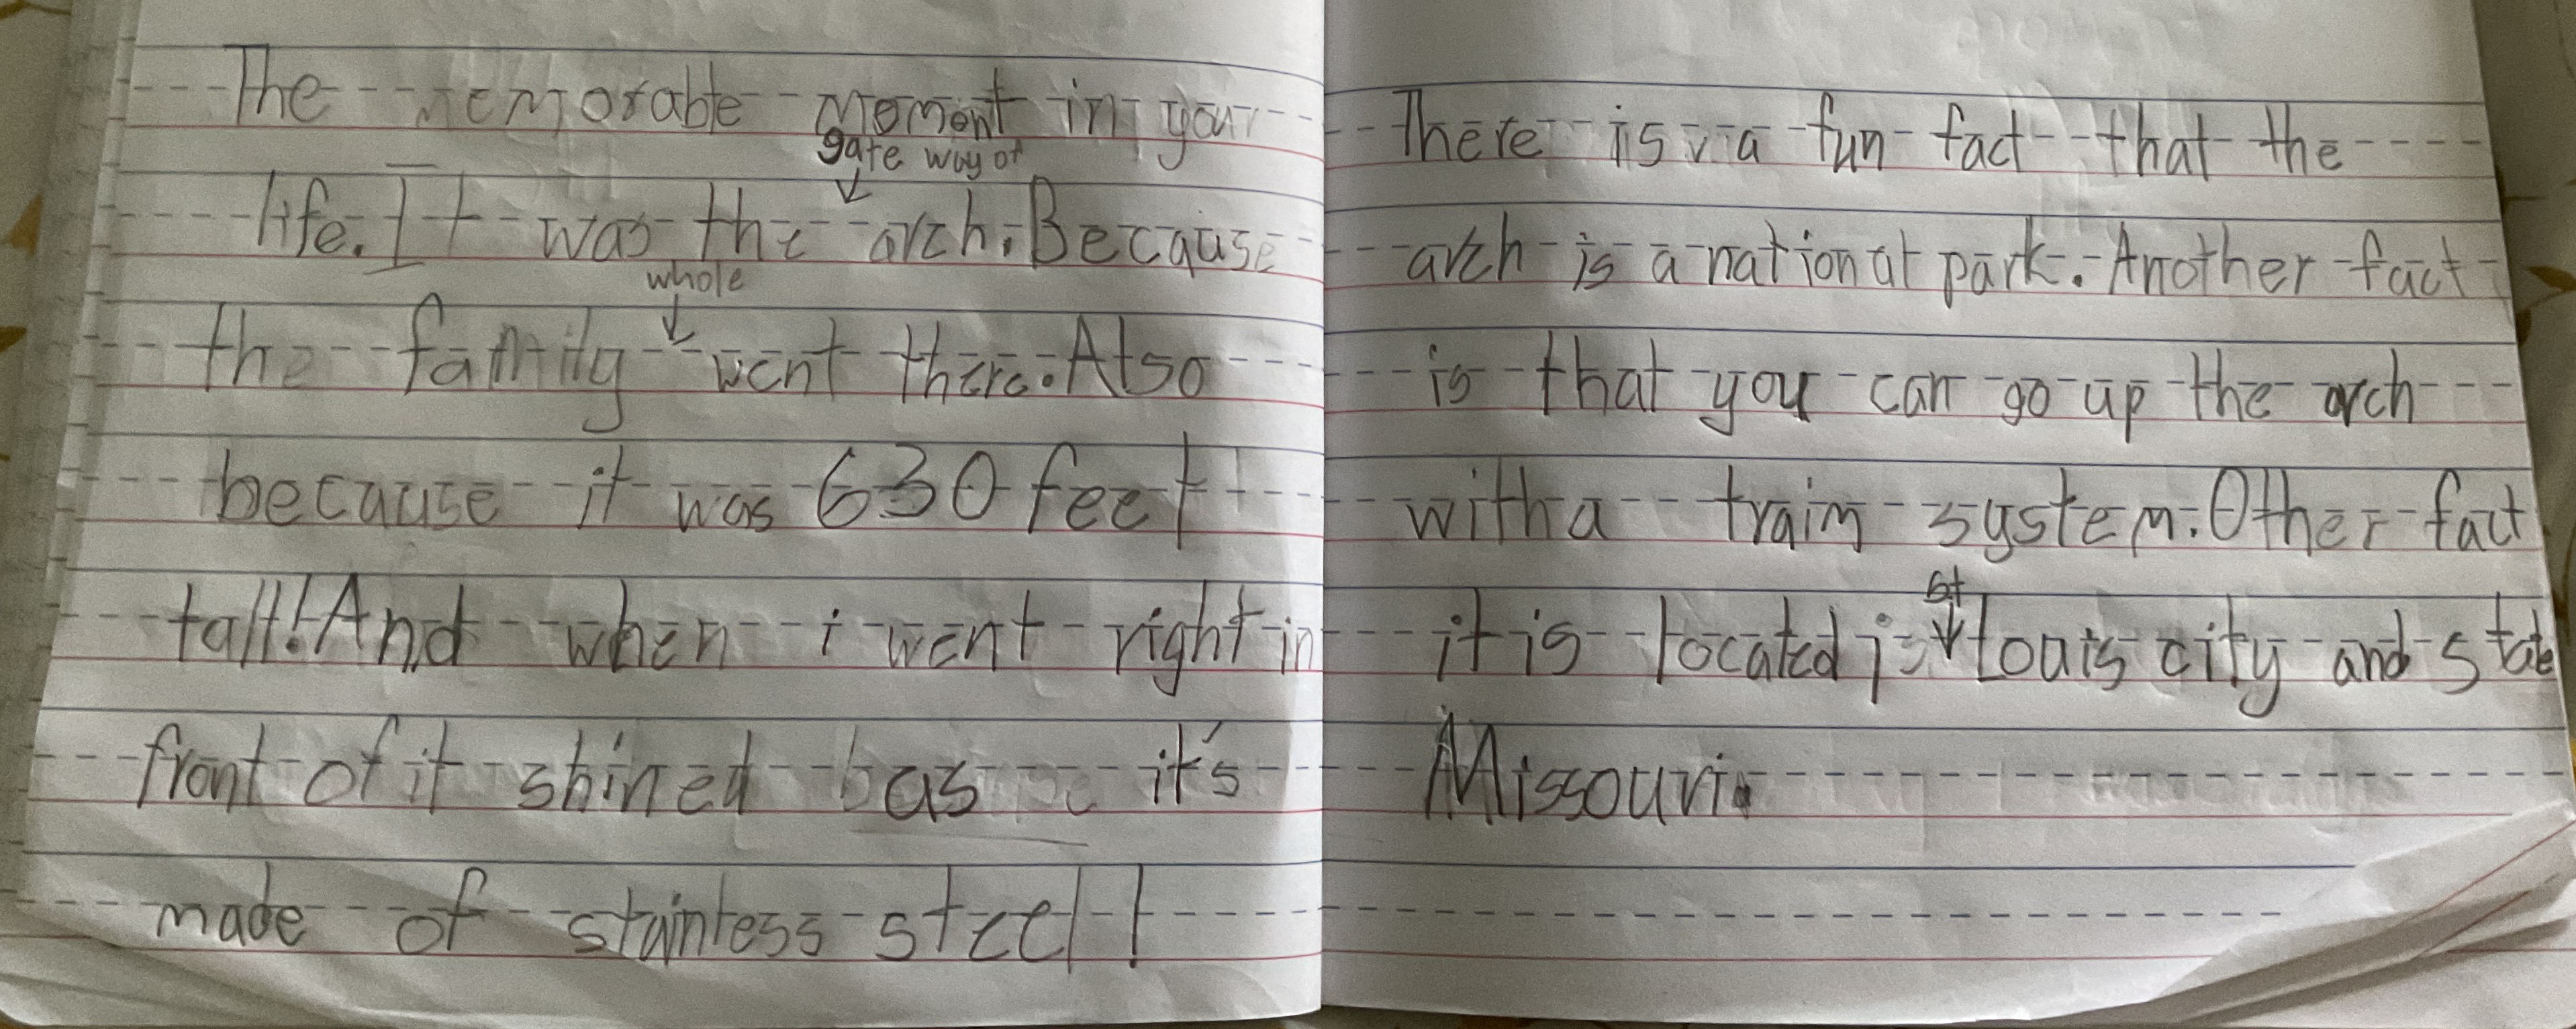 The memorable moment in your
gate way of
life. It was the arch. Because
whole
the family went there. Also
because it was 630 feet
tall! And when i went right in
front of it shined as it's
made of stainless steel!
There is a fun fact that the
arch is a national park. Another fact
is that you can go up the arch
with a train system. Other fact
st
it is located in louis city and state
Missouri.